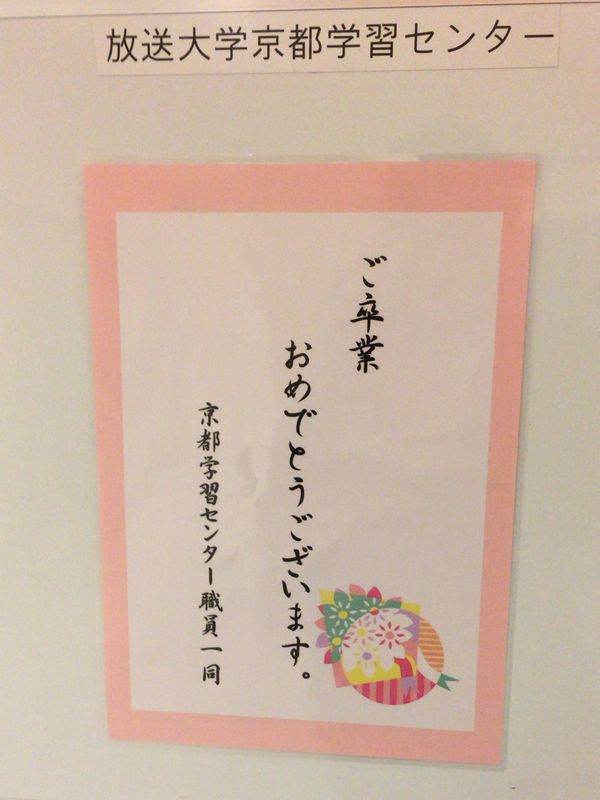 放送大学京都学習センター
ご卒業
おめでとうございます。
京都学習センター職員一同